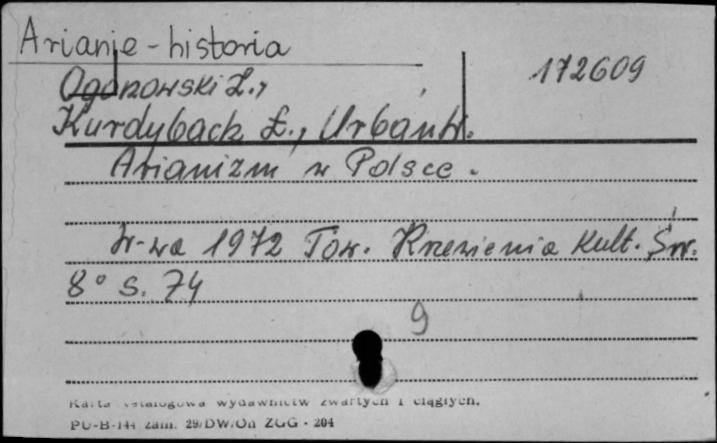 Arianie - historia
172609
Ogonowski Z.,
Kurdybach Ł., Urban W.
Arianizm w Polsce.
W-wa 1972 Tow. Krzewienia Kult. Św.
8° s. 74
9
Karta katalogowa wydawnictw zwartych i ciągłych.
PU-B-144 zam. 29/DW/On ZGG - 204